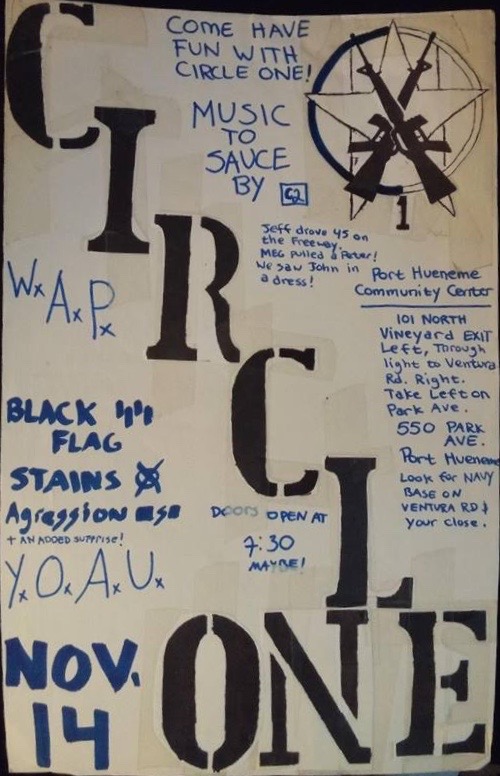 COME HAVE
FUN WITH
CIRCLE ONE!
MUSIC
TO
SAUCE
BY
1
C
I
R
C
L
ONE
Jeff drove 45 on
the Freeway.
MEG pulled a Peter!
We saw John in
a dress!
Port Hueneme
Community Center
101 NORTH
Vineyard EXIT
Left, Through
light to Ventura
Rd. Right.
Take Left on
Park Ave.
550 PARK
AVE.
Port Hueneme
Look for NAVY
BASE ON
VENTURA RD &
your close.
WxAxPx
BLACK
FLAG
STAINS
Agression
+ AN ADDED SUPRISE!
YxOxAxUx
DOORS OPEN AT
7:30
MAYBE!
NOV.
14